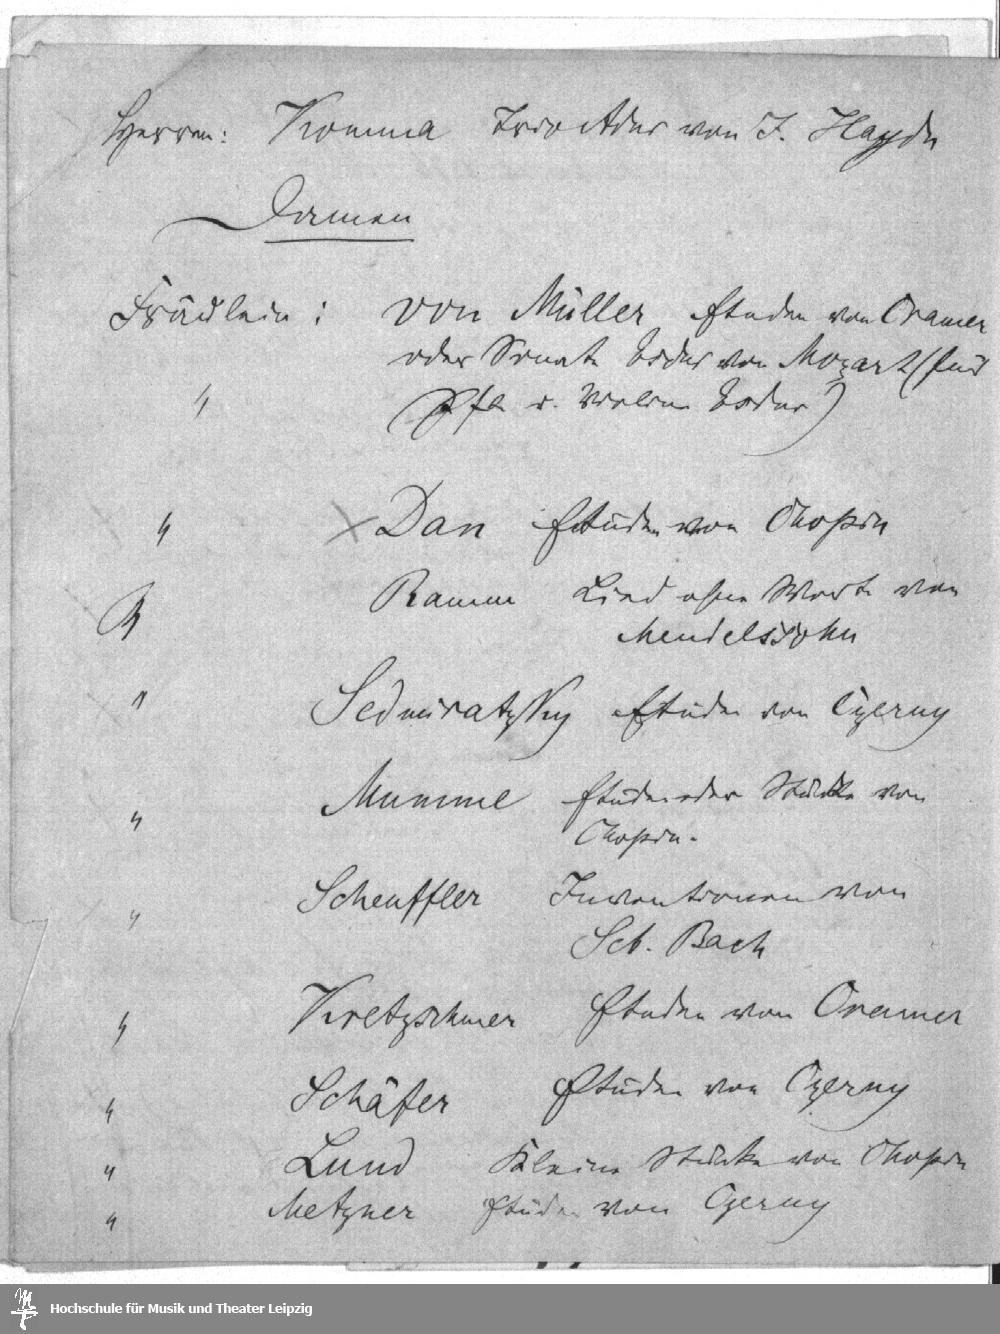 Herren: Komma Trio Adur von J. Haydn
Damen
Fräulein: von Müller Etuden von Cramer
oder Sonate von Mozart (für
" Pfte u. Violine
" Dan Etüden von Chopin
" Ramm Lied ohne Worte von
Mendelssohn
" Sedmiratzky Etüden von Czerny
" Mumme Etüden oder Stücke von
Chopin.
" Scheuffler Inventionen von
Seb. Bach
" Kretzschmer Etuden von Cramer
" Schäfer Etüden von Czerny
" Lund Kleine Stücke von Chopin
" Metzner Etüden von Czerny
Hochschule für Musik und Theater Leipzig